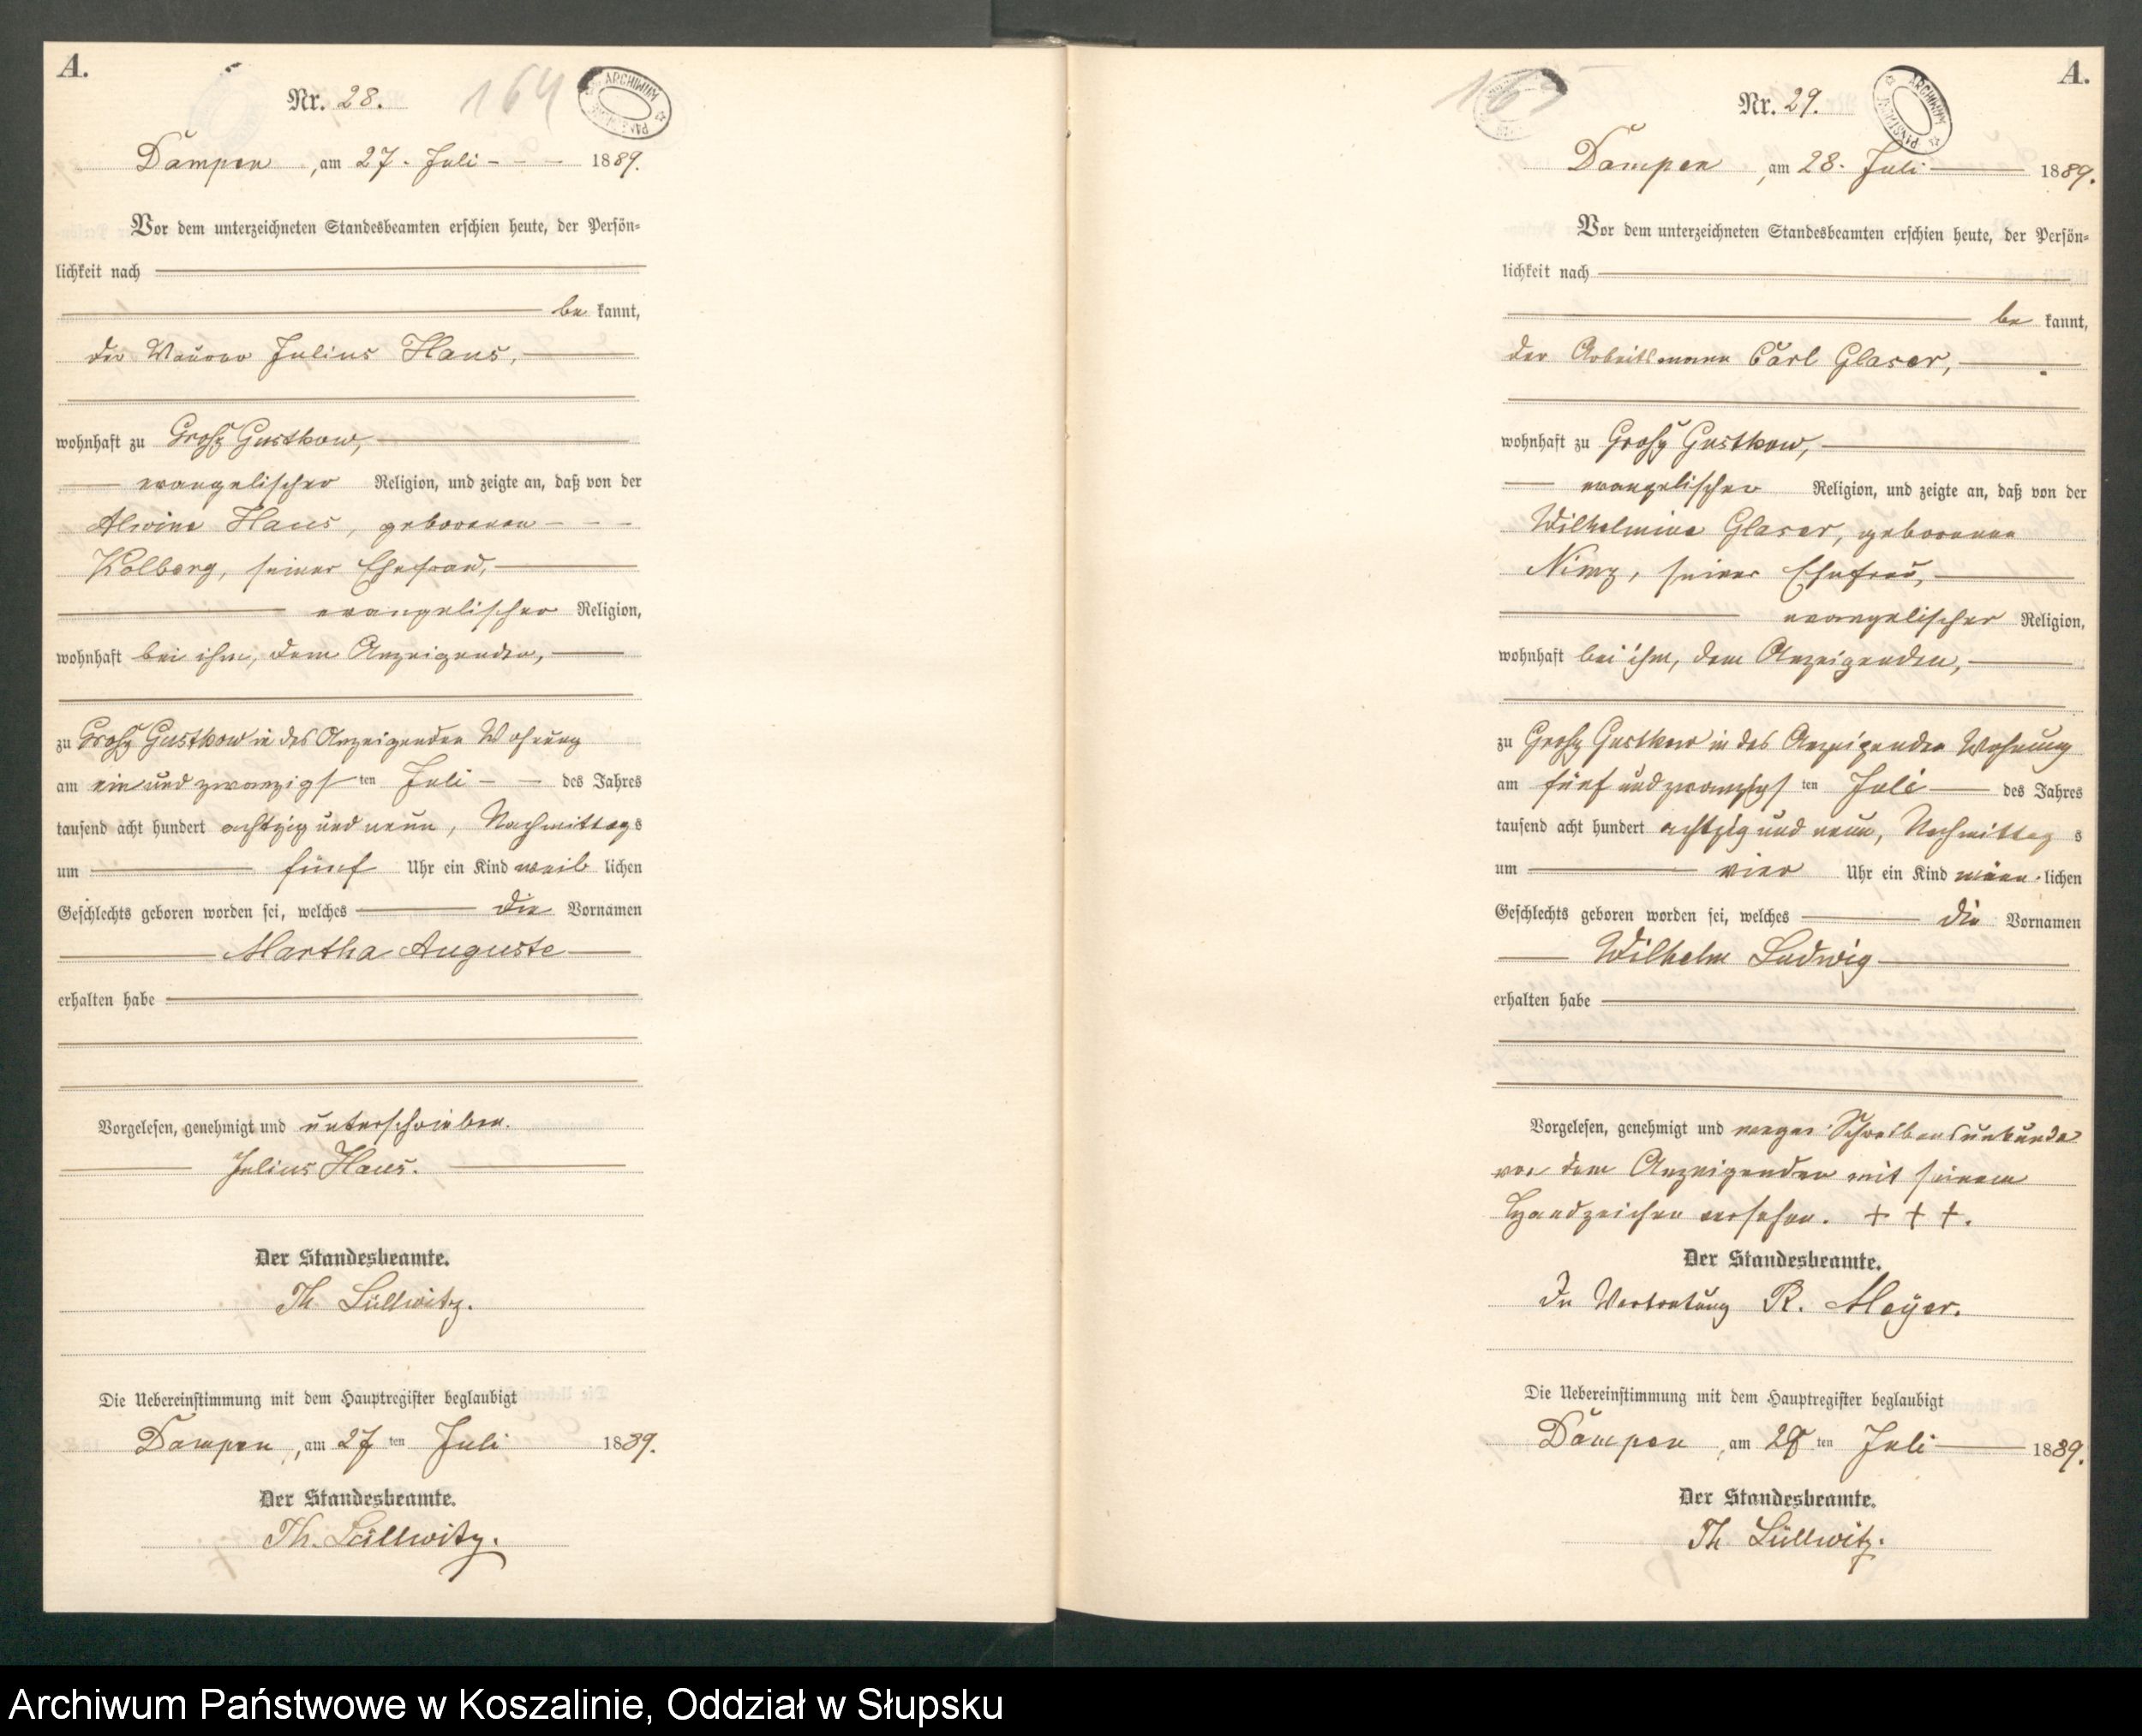 A.
Nr. 28.
164
ARCHIWUM
Dampen, am 27. Juli - - - 1889.
Vor dem unterzeichneten Standesbeamten erschien heute, der Persön-
lichkeit nach
be kannt,
der Maurer Julius Haus,
wohnhaft zu Groß Gustkow,
evangelischer Religion, und zeigte an, daß von der
Alwine Haus, geborenen - - -
Kolberg, seiner Ehefrau,
evangelischer Religion,
wohnhaft bei ihm, dem Anzeigenden,
zu Groß Gustkow in des Anzeigenden Wohnung
am ein und zwanzigsten Juli - - des Jahres
tausend acht hundert achtzig und neun, Nachmittags
um fünf Uhr ein Kind weiblichen
Geschlechts geboren worden sei, welches die Vornamen
Martha Auguste
erhalten habe
Vorgelesen, genehmigt und unterschrieben.
Julius Haus.
Der Standesbeamte.
Th. Lüllwitz.
Die Uebereinstimmung mit dem Hauptregister beglaubigt
Dampen, am 27ten Juli 1889.
Der Standesbeamte.
Th. Lüllwitz.
A.
Nr. 29.
ARCHIWUM
Dampen, am 28. Juli 1889.
Vor dem unterzeichneten Standesbeamten erschien heute, der Persön-
lichkeit nach
be kannt,
der Arbeitsmann Carl Glaser,
wohnhaft zu Groß Gustkow,
evangelischer Religion, und zeigte an, daß von der
Wilhelmine Glaser, geborenen
Nimz, seiner Ehefrau,
evangelischer Religion,
wohnhaft bei ihm, dem Anzeigenden,
zu Groß Gustkow in des Anzeigenden Wohnung
am fünf und zwanzigsten Juli des Jahres
tausend acht hundert achtzig und neun, Nachmittags
um vier Uhr ein Kind männlichen
Geschlechts geboren worden sei, welches die Vornamen
Wilhelm Ludwig
erhalten habe
Vorgelesen, genehmigt und wegen Schreibensunkunde
von dem Anzeigenden mit seinem
Handzeichen versehen. + + +.
Der Standesbeamte.
In Vertretung R. Meyer.
Die Uebereinstimmung mit dem Hauptregister beglaubigt
Dampen, am ten Juli 1889.
Der Standesbeamte.
Th Lüllwitz.
Archiwum Państwowe w Koszalinie, Oddział w Słupsku